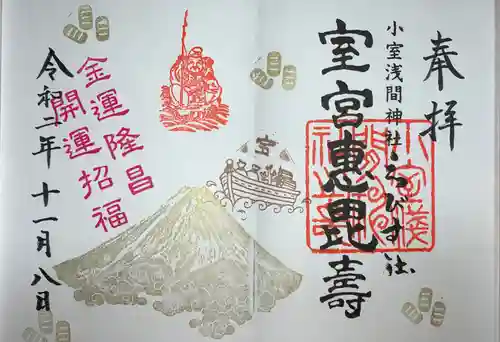 奉拝
小室浅間神社・ゑびす社
室宮恵毘壽
宝
金運隆昌
開運招福
令和二年十一月八日